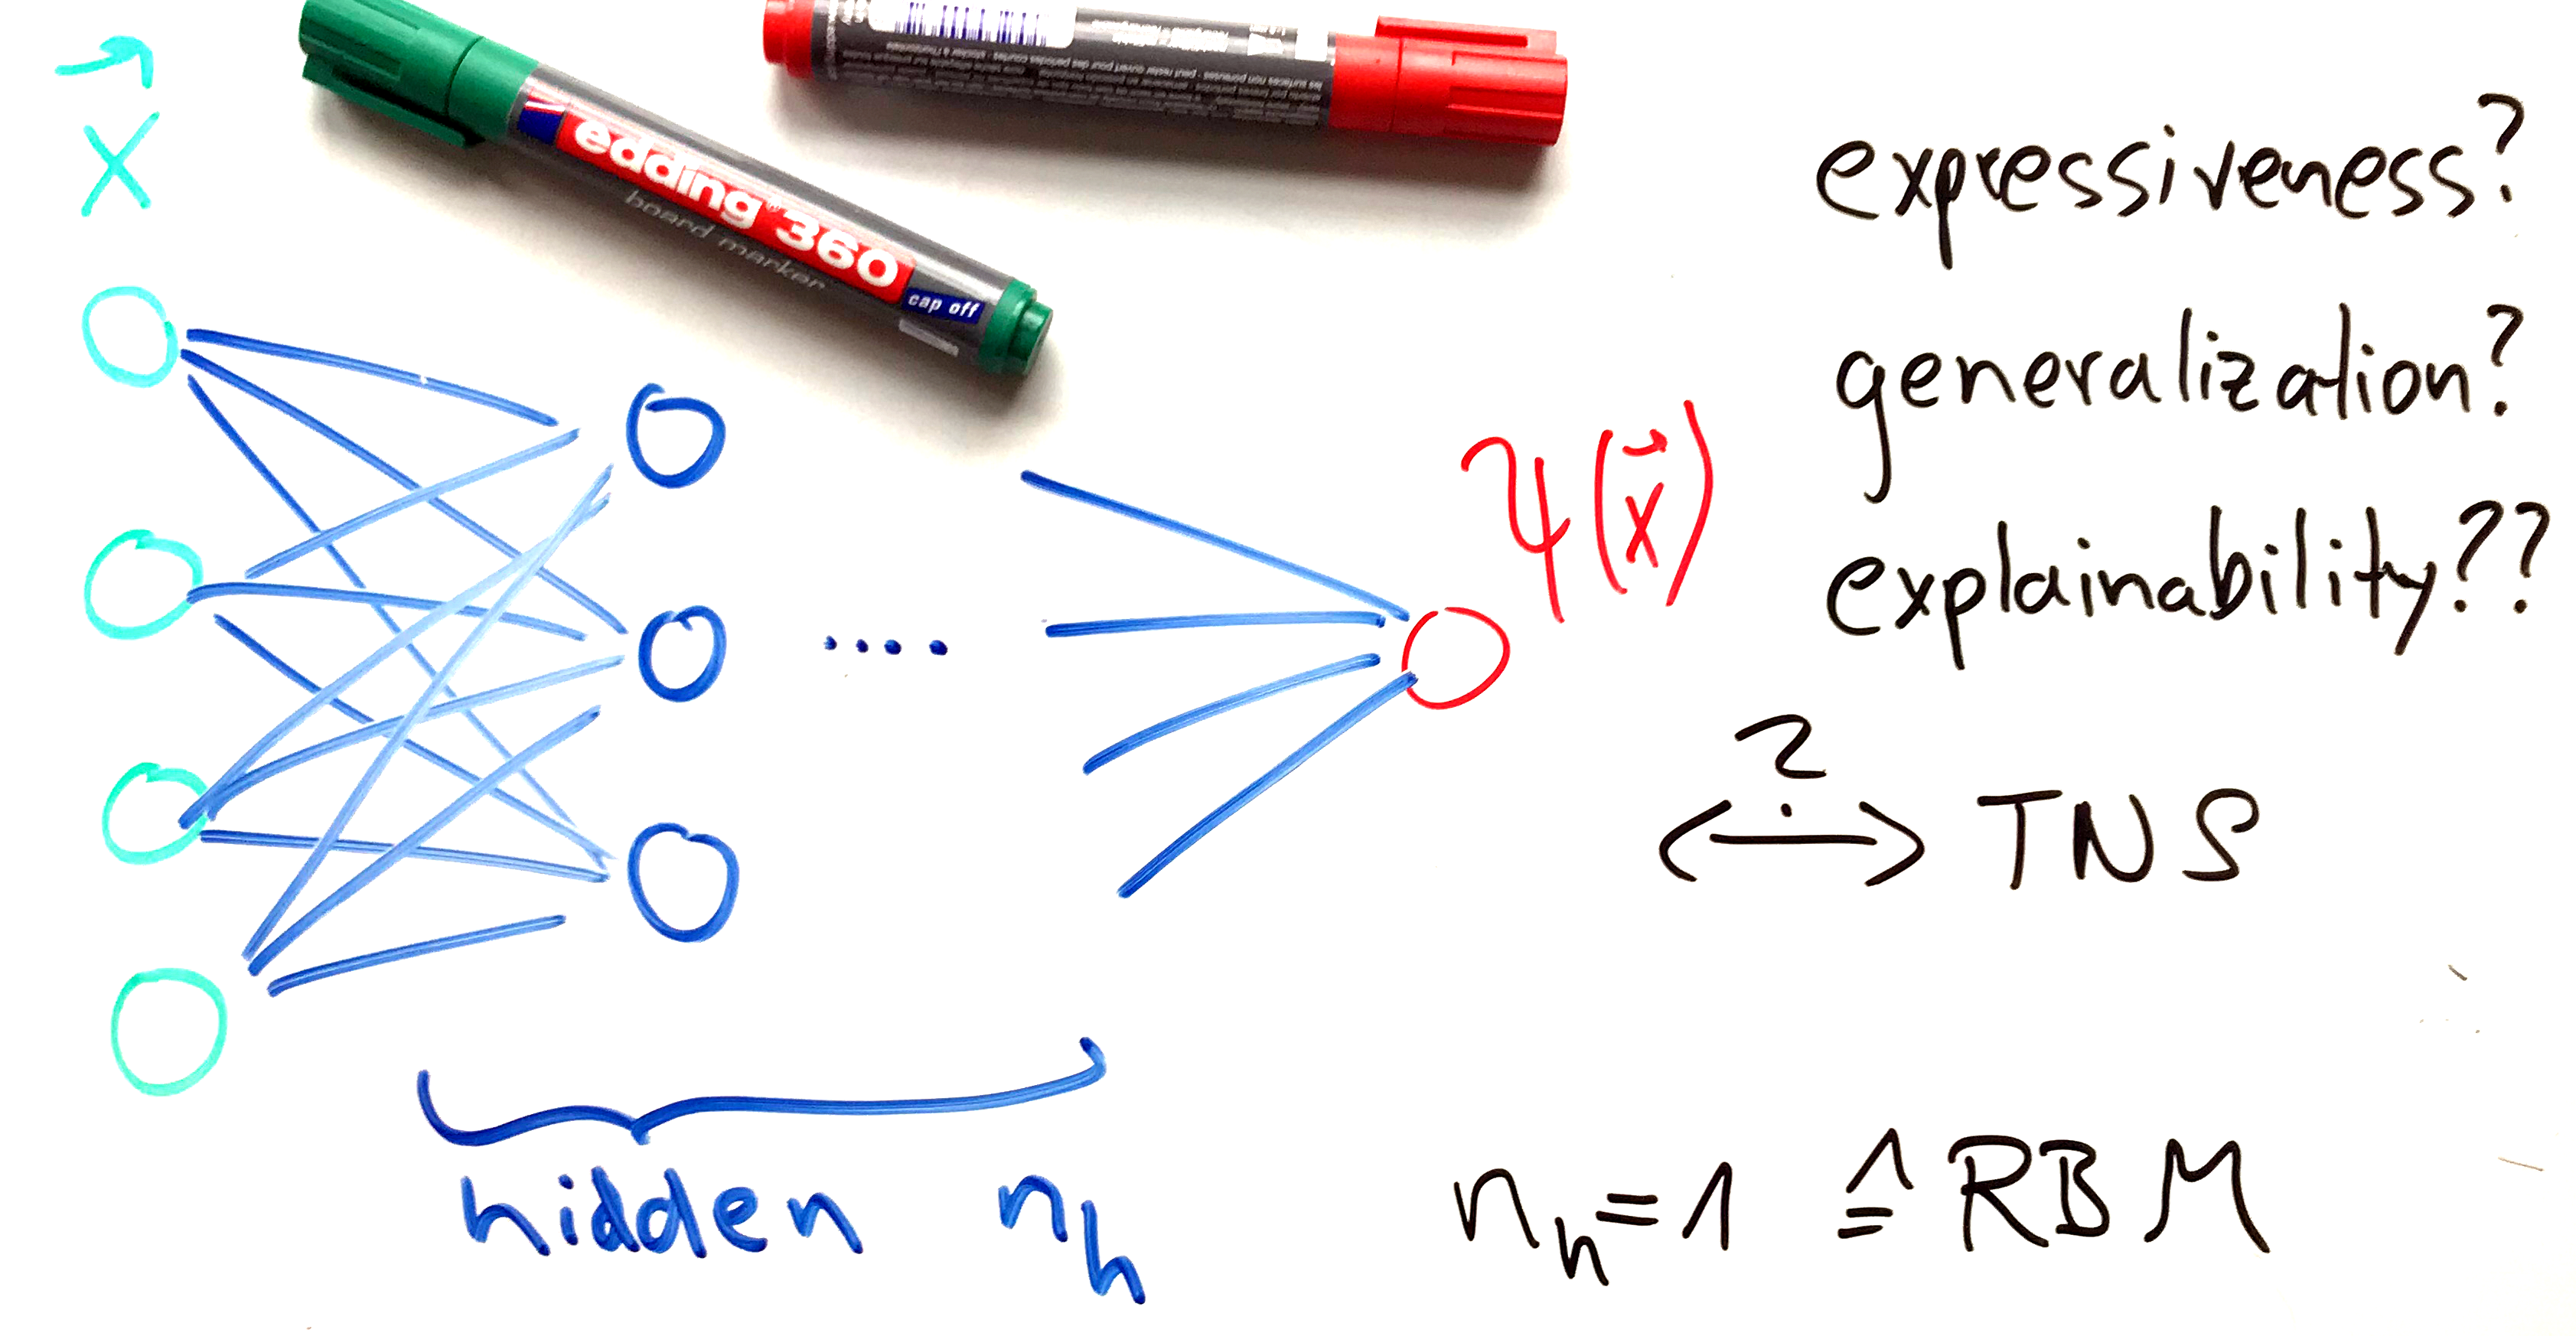 x⃗
edding 360
board marker
cap off
ψ(x⃗)
expressiveness?
generalization?
explainability??
⟷? TNS
hidden n_h
n_h = 1 ≙ RBM